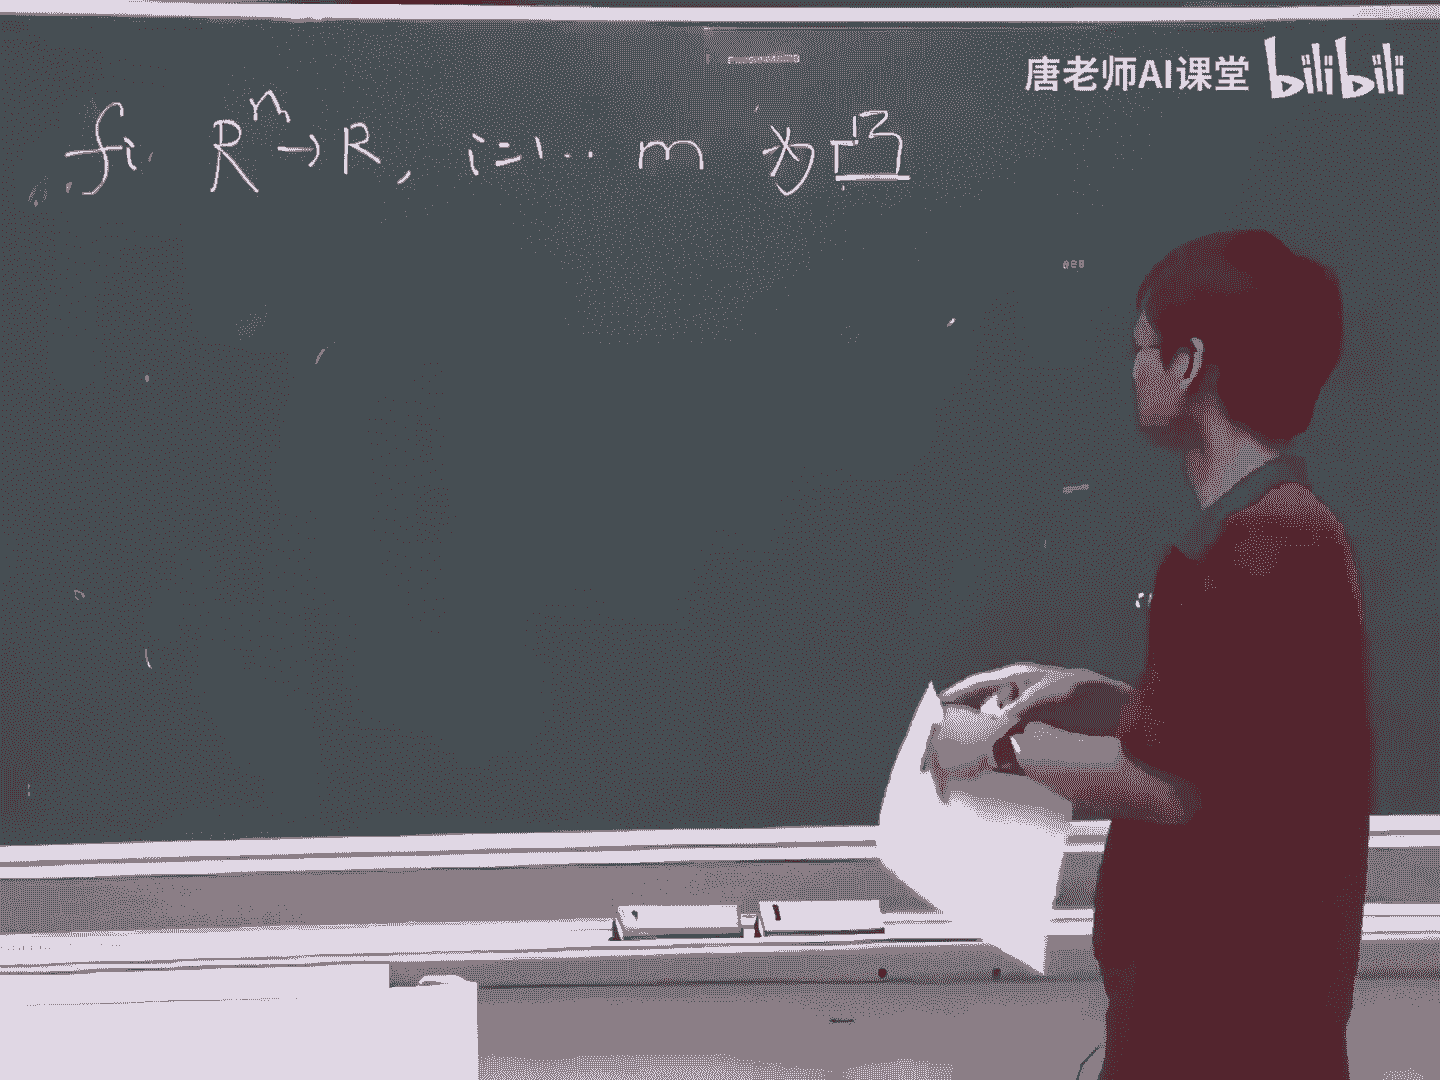 唐老师AI课堂 bilibili
fi. Rⁿ→R, i=1... m 为凸